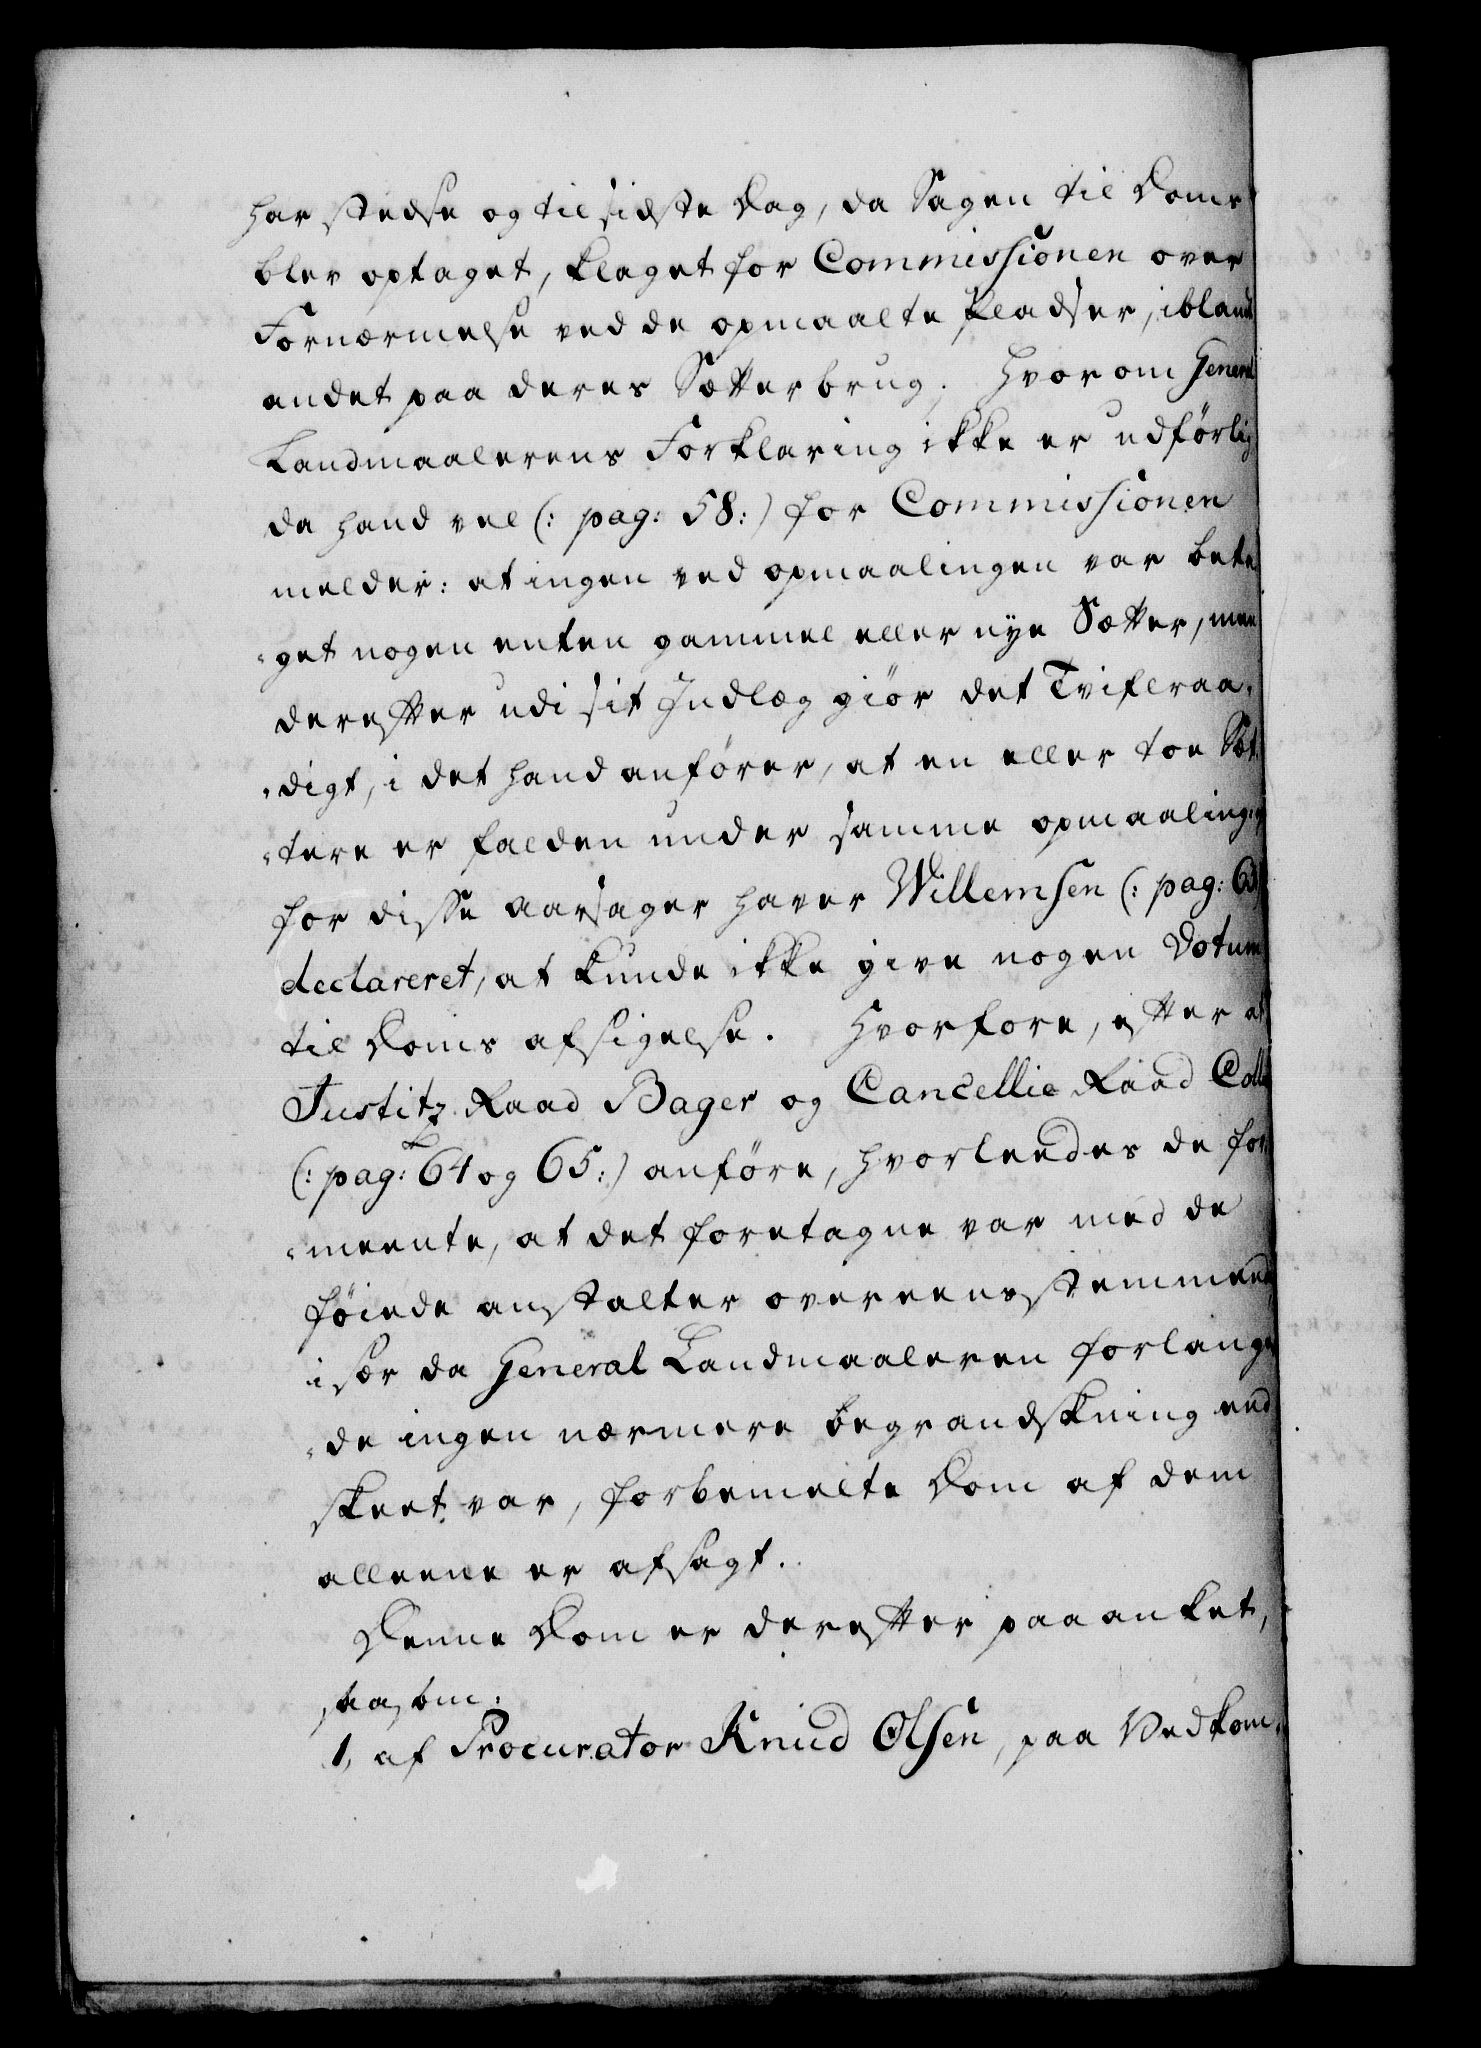 har stedse og til sidste Dag, da Sagen til Doms
blev optaget, klaget for Commissionen over
Fornærmelse ved de opmaalte Pladser, iblandt
andet paa deres Sætterbrug. Hvorom General
Landmaalerens Forklaring ikke er udförlig
da hand vel (: pag: 58:) for Commissionen
melder: at ingen ved opmaalingen var beta
get nogen enten gammel eller nye Sætter, men
derefter udi sit Indlæg giör det Tvifraa-
digt, i det hand anförer, at en eller toe Sæt
tere er falden under samme opmaaling.
for disse aarsager haver Willemsen (: pag: 63
declareret, at kunde ikke give nogen Votum
til Doms afsigelse. Hvorfore, efter at
Justitz Raad Bager og Cancellie Raad Coll
(: pag: 64 og 65:) anföre, hvorleedes de for
meente, at det foretagne var med de
föiede anstalter overeensstemmende,
i sær da General Landmaaleren forlang
de ingen nærmere begrandskning end
skeet var, forbemelte Dom af dem
alleene er afsagt.
Denne Dom er derefter paaanket,
saasom:
1, af Procurator Knud Olsen, paa Vedkom-